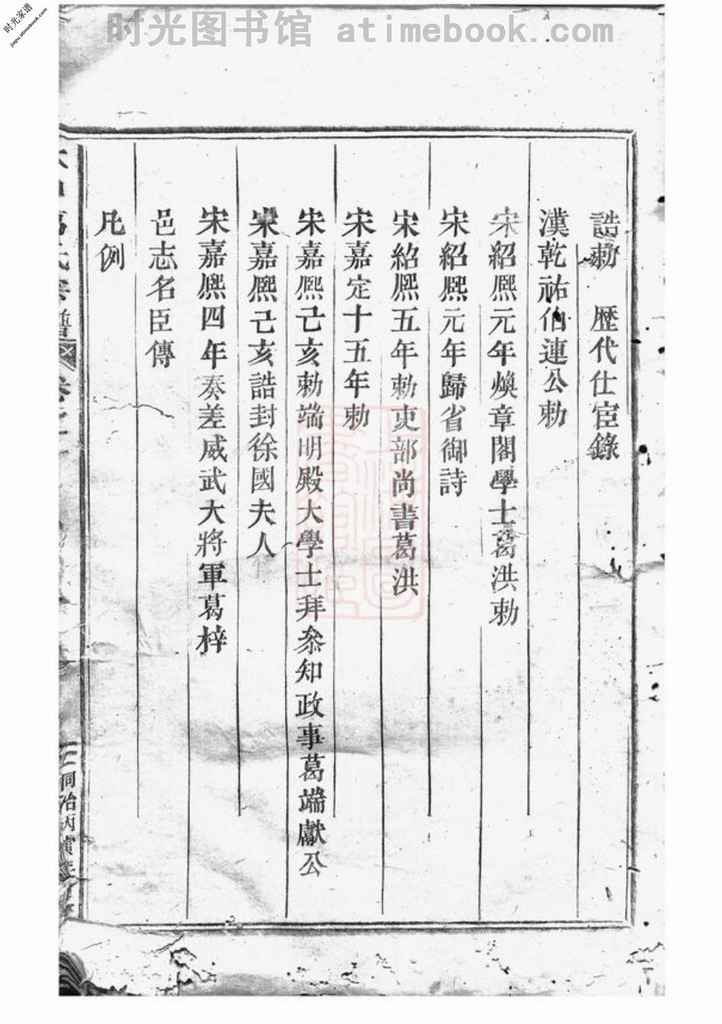 时光图书馆 atimebook.com
时光家谱
jiapu.atimebook.com
誥勅　歷代仕宦錄
漢乾祐伯連公勅
宋紹熈元年煥章閣學士葛洪勅
宋紹熈元年歸省御詩
宋紹熈五年勅吏部尚書葛洪
宋嘉定十五年勅
宋嘉熈己亥勅端明殿大學士拜叅知政事葛端獻公
宋嘉熈己亥誥封徐國夫人
宋嘉熈四年奏差威武大將軍葛梓
邑志名臣傳
凡例
葛氏宗譜 卷之一
同治丙寅